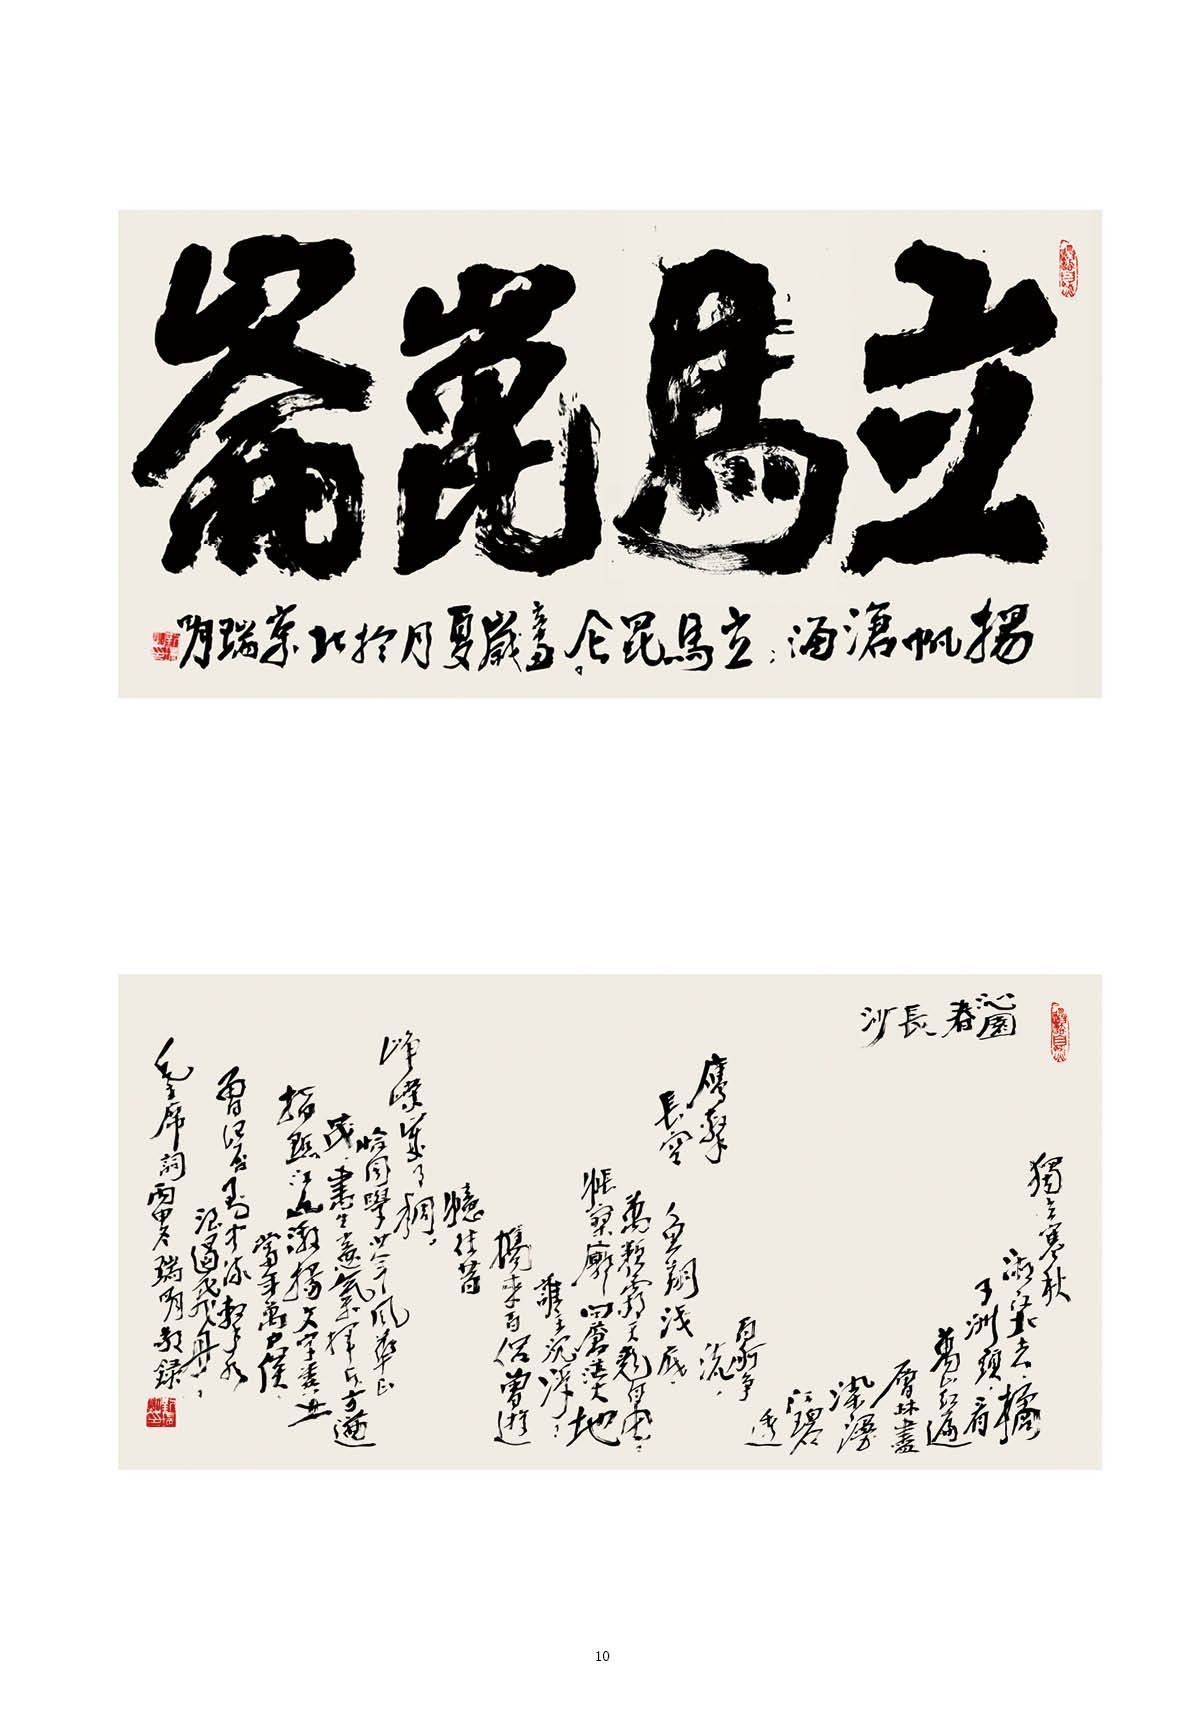 立馬崑崙
揚帆滄海；立馬昆仑。歲夏月於北京瑞明
沁園春 長沙
獨立寒秋
湘江北去，橘
子洲頭，看
萬山紅遍
層林盡
染漫
江碧
透
百舸爭
流，
鷹擊
長空
魚翔淺底，
萬類霜天競自由，
悵寥廓問蒼茫大地
誰主沉浮，
攜來百侶曾遊
憶往昔
崢嶸歲月
稠，
恰同學少年風華正
茂，書生意氣揮斥方遒
指點江山激揚文字糞土
當年萬戶侯，
曾記否到中流擊水
浪遏飛舟，
毛主席詞丙申冬瑞明敬錄
10